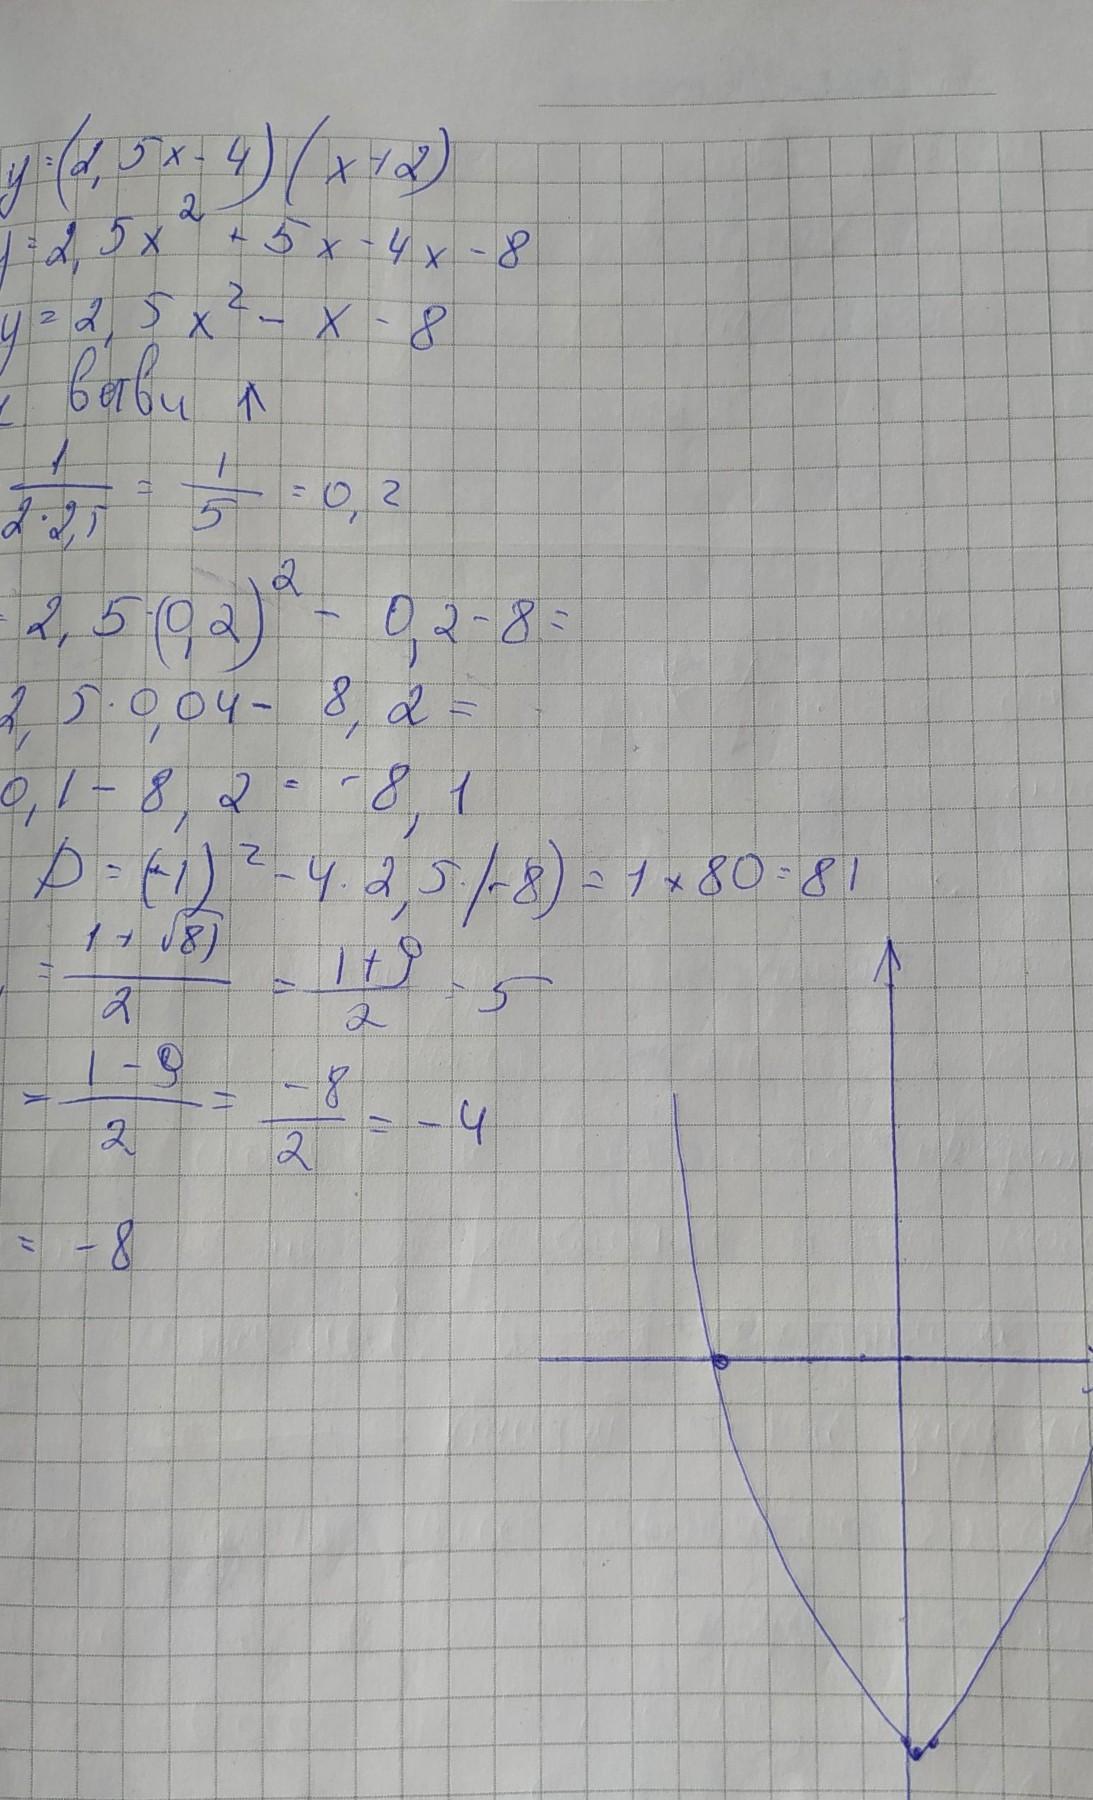 y=(2,5x-4)(x+2)
y=2,5x²+5x-4x-8
y=2,5x²-x-8
ветви ↑
1/(2·2,5) = 1/5 = 0,2
= 2,5·(0,2)² - 0,2-8=
2,5·0,04- 8,2=
0,1-8,2 = -8,1
D=(-1)²-4·2,5·(-8)=1+80=81
= (1+√81)/2 = (1+9)/2 = 5
= (1-9)/2 = -8/2 = -4
= -8